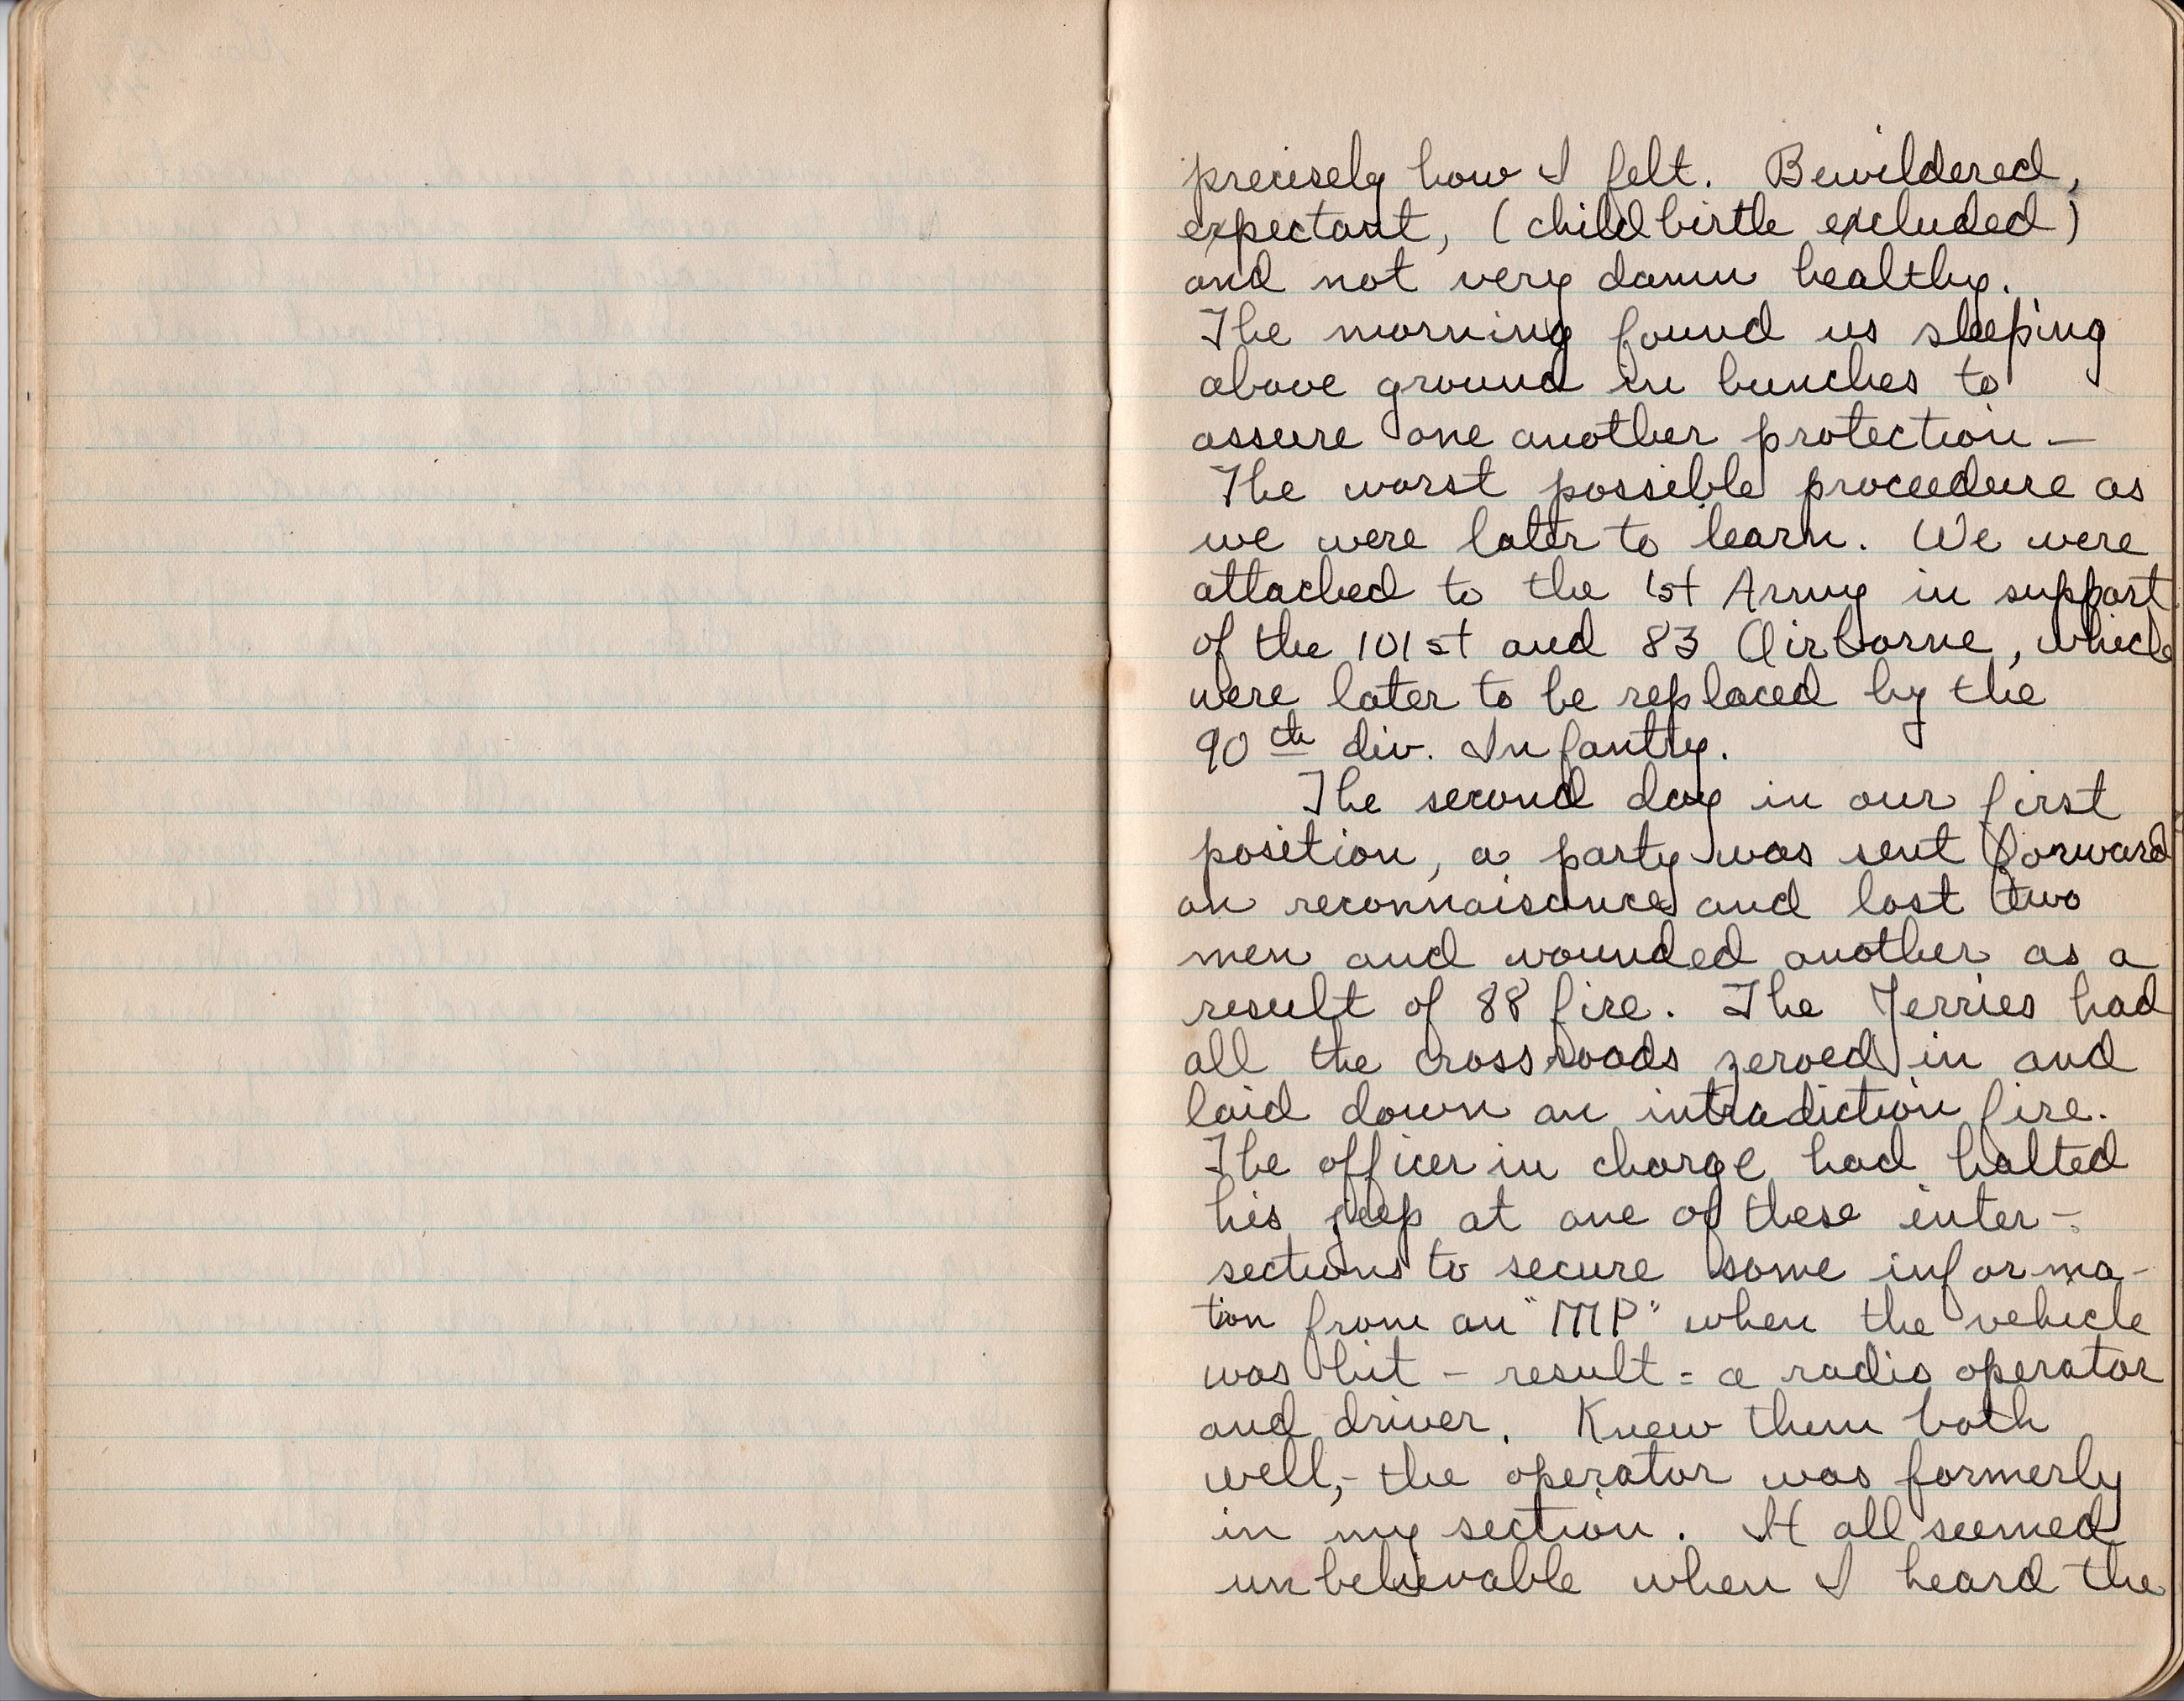 precisely how I felt. Bewildered,
expectant, (child birth excluded)
and not very damn healthy.
The morning found us sleeping
above ground in bunches to
assure one another protection —
The worst possible proceedure as
we were later to learn. We were
attached to the 1st Army in support
of the 101st and 83 Airborne, which
were later to be replaced by the
90th div. Infantry.
The second day in our first
position, a party was sent forward
on reconnaisance and lost two
men and wounded another as a
result of 88 fire. The Jerries had
all the crossroads zeroed in and
laid down an intradiction fire.
The officer in charge had halted
his jeep at one of these inter-
sections to secure some informa-
tion from an "MP" when the vehicle
was hit - result = a radio operator
and driver. Knew them both
well,- the operator was formerly
in my section. It all seemed
unbelievable when I heard the